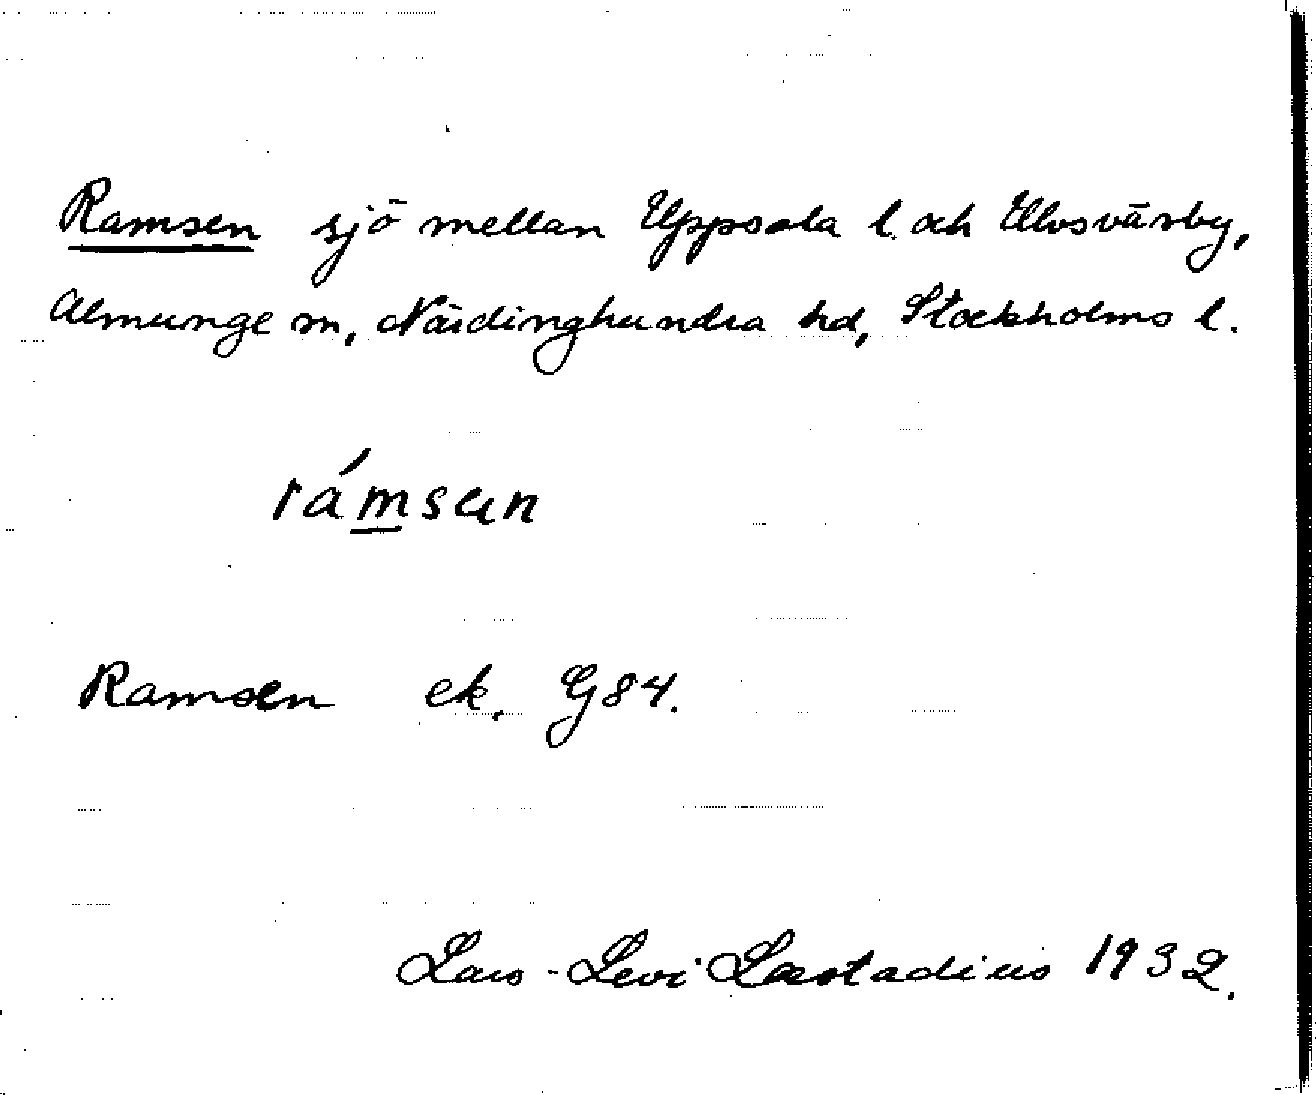 Ramsen sjö mellan Uppsala l. och Ulvsväsby,
Almunge sn, Närdinghundra hd, Stockholms l.
rámsan
Ramsen ek. G84.
Lars-Levi Læstadius 1932.